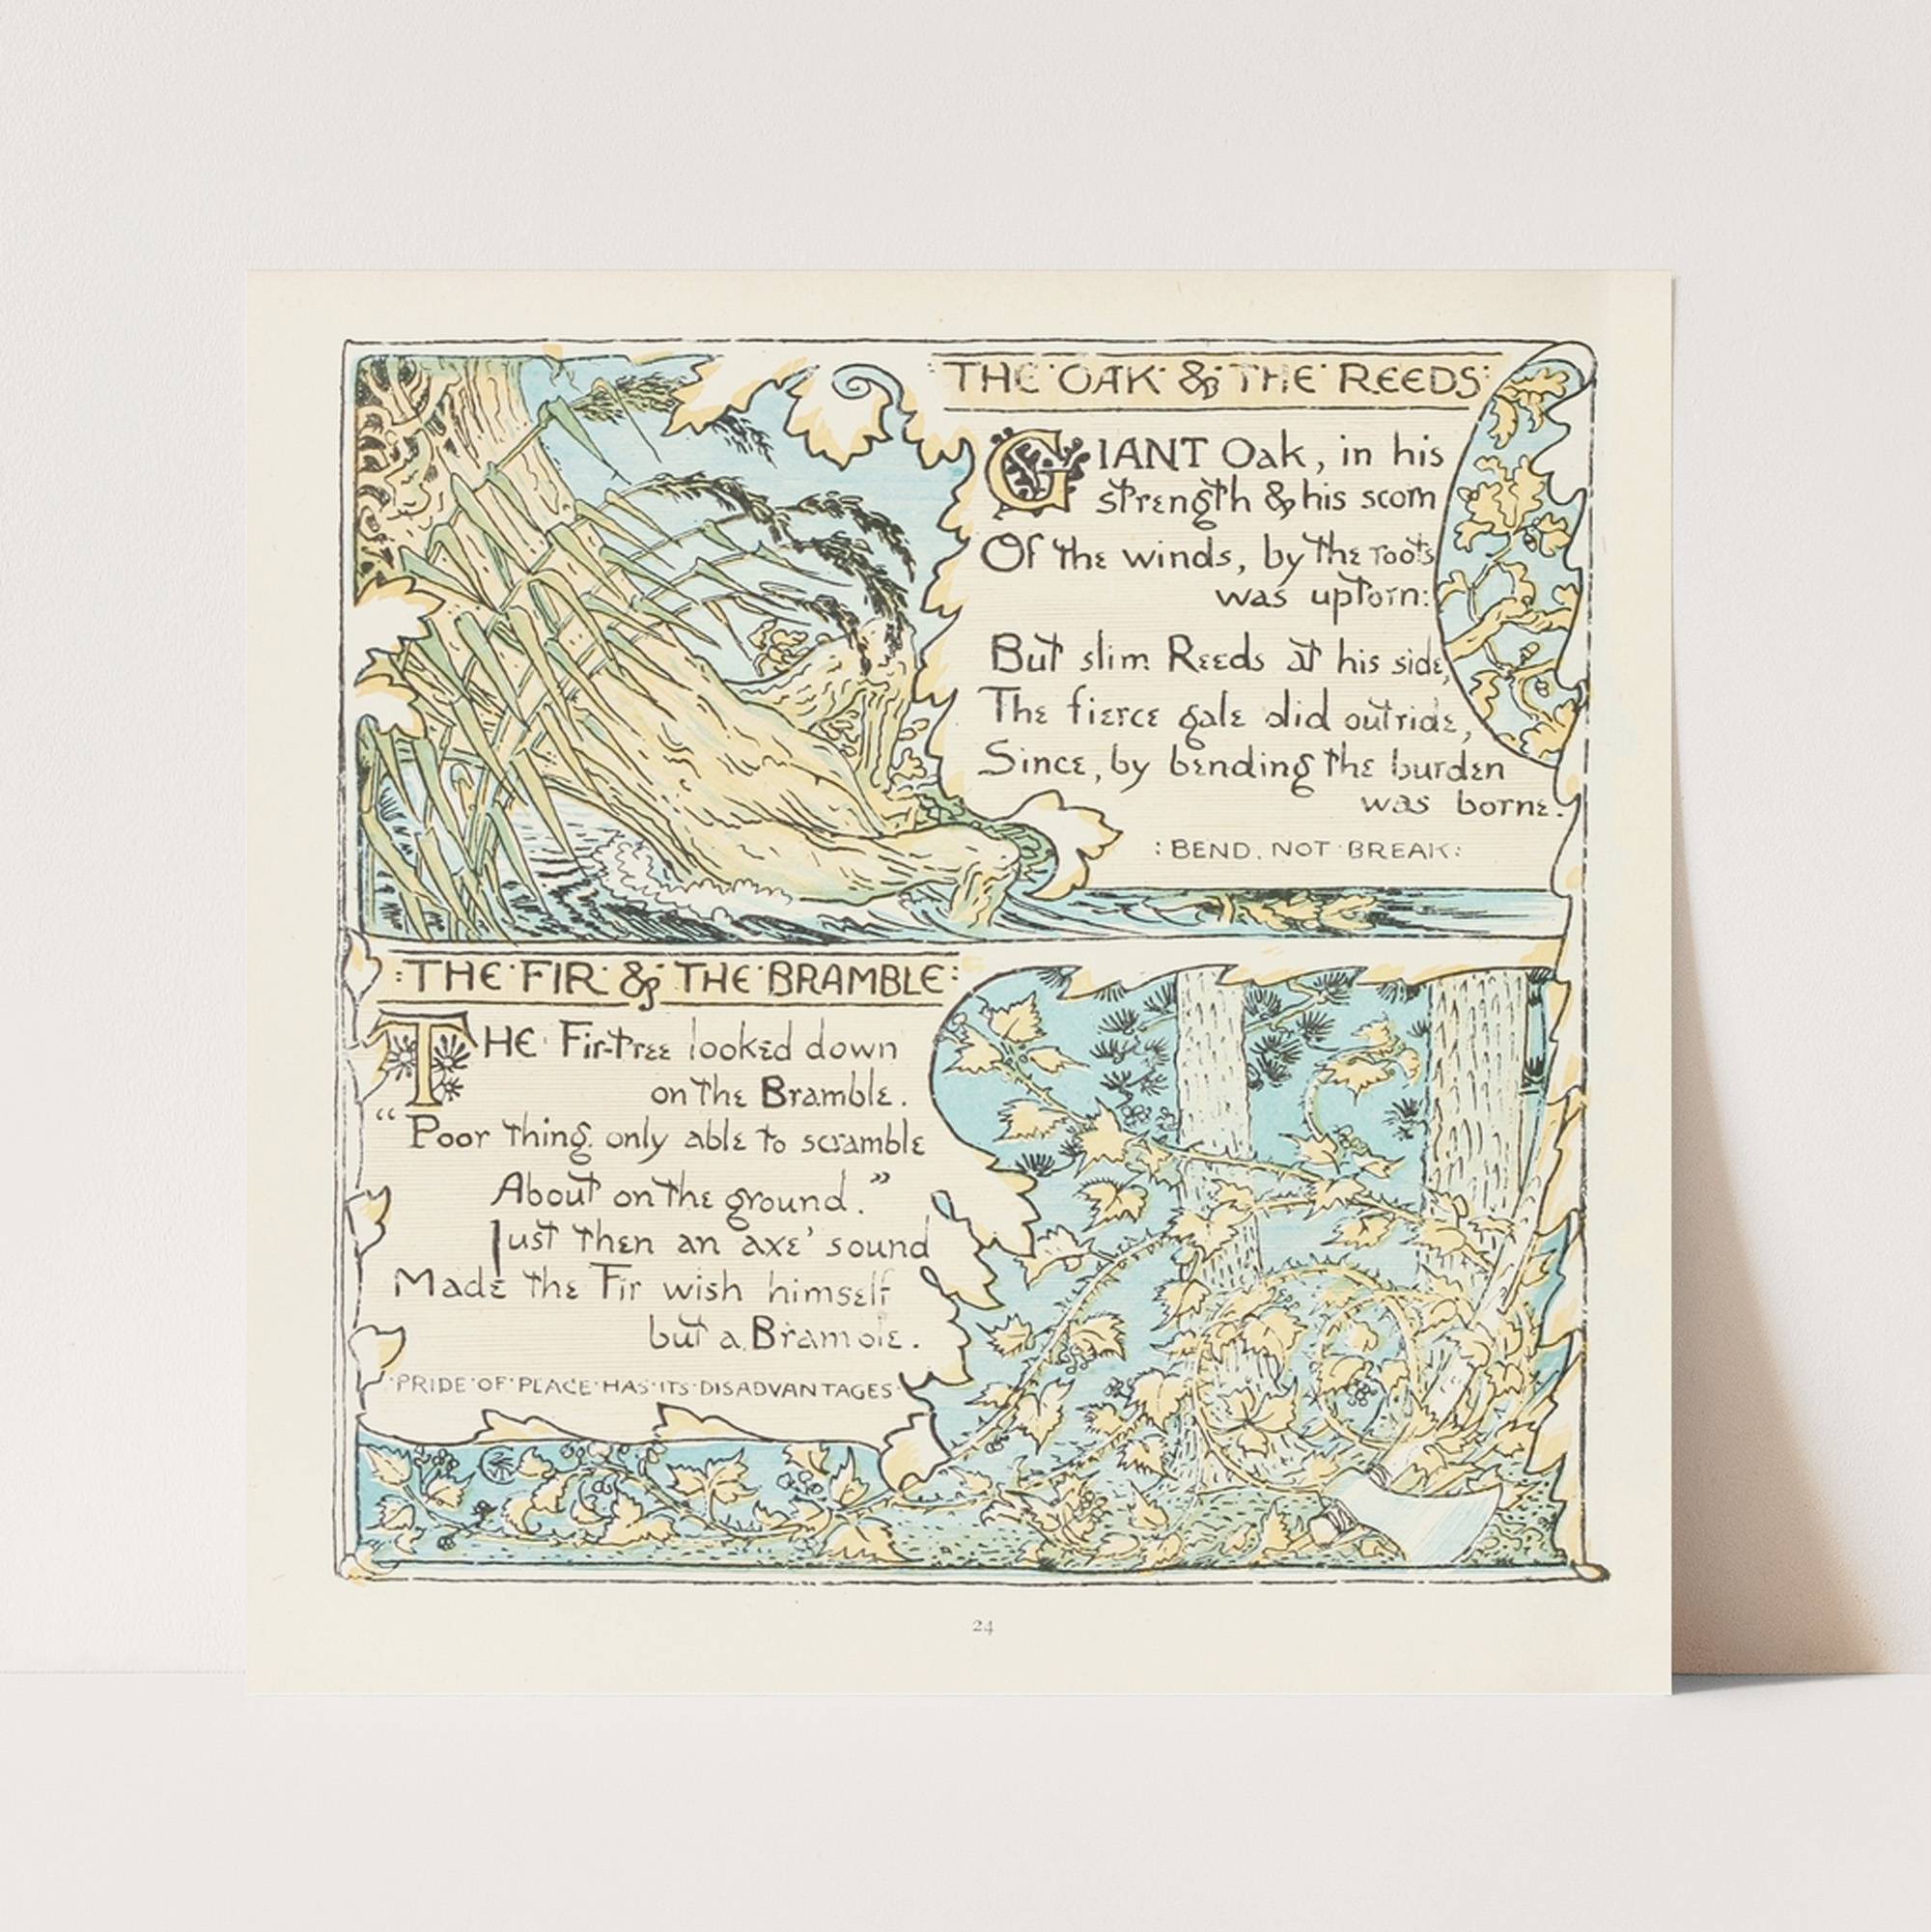 THE OAK & THE REEDS
GIANT Oak, in his
strength & his scorn
Of the winds, by the roots
was uptorn:
But slim Reeds at his side,
The fierce gale did outride,
Since, by bending the burden
was borne.
: BEND, NOT BREAK :
: THE FIR & THE BRAMBLE :
THE Fir-tree looked down
on the Bramble.
"Poor thing, only able to scramble
About on the ground."
Just then an axe' sound
Made the Fir wish himself
but a Bramble.
PRIDE OF PLACE HAS ITS DISADVANTAGES
24